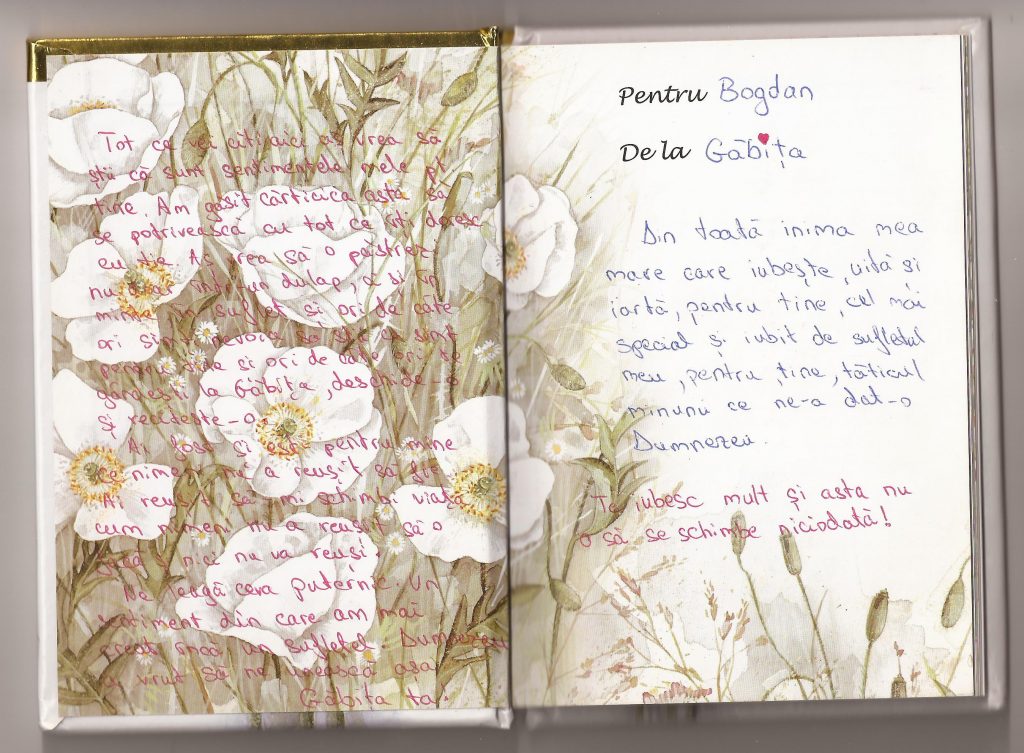 Tot ce vei citi aici aș vrea să
știi că sunt sentimentele mele pt
tine. Am găsit cărticica asta să
se potrivească cu tot ce îți doresc
eu ție. Aș vrea să o păstrezi
nu într-un dulap, ci și în
minte în suflet și ori de câte
ori simți nevoia să știi ce sunt
pentru tine și ori de câte ori te
gândești la Găbița, deschide-o
și recitește-o.
Ai fost și ești pentru mine
ce nimeni n-a reușit să fie.
Ai reușit să-mi schimbi viața
cum nimeni n-a reușit să o
facă și nici nu va reuși.
Ne leagă ceva puternic. Un
sentiment din care am mai
creat încă un sufletel. Dumnezeu
a vrut să ne unească așa.
Găbița ta.
Pentru Bogdan
De la Găbița
Din toată inima mea
mare care iubește, uită și
iartă, pentru tine, cel mai
special și iubit de sufletul
meu, pentru tine, tăticul
minunii ce ne-a dat-o
Dumnezeu.
Te iubesc mult și asta nu
o să se schimbe niciodată!